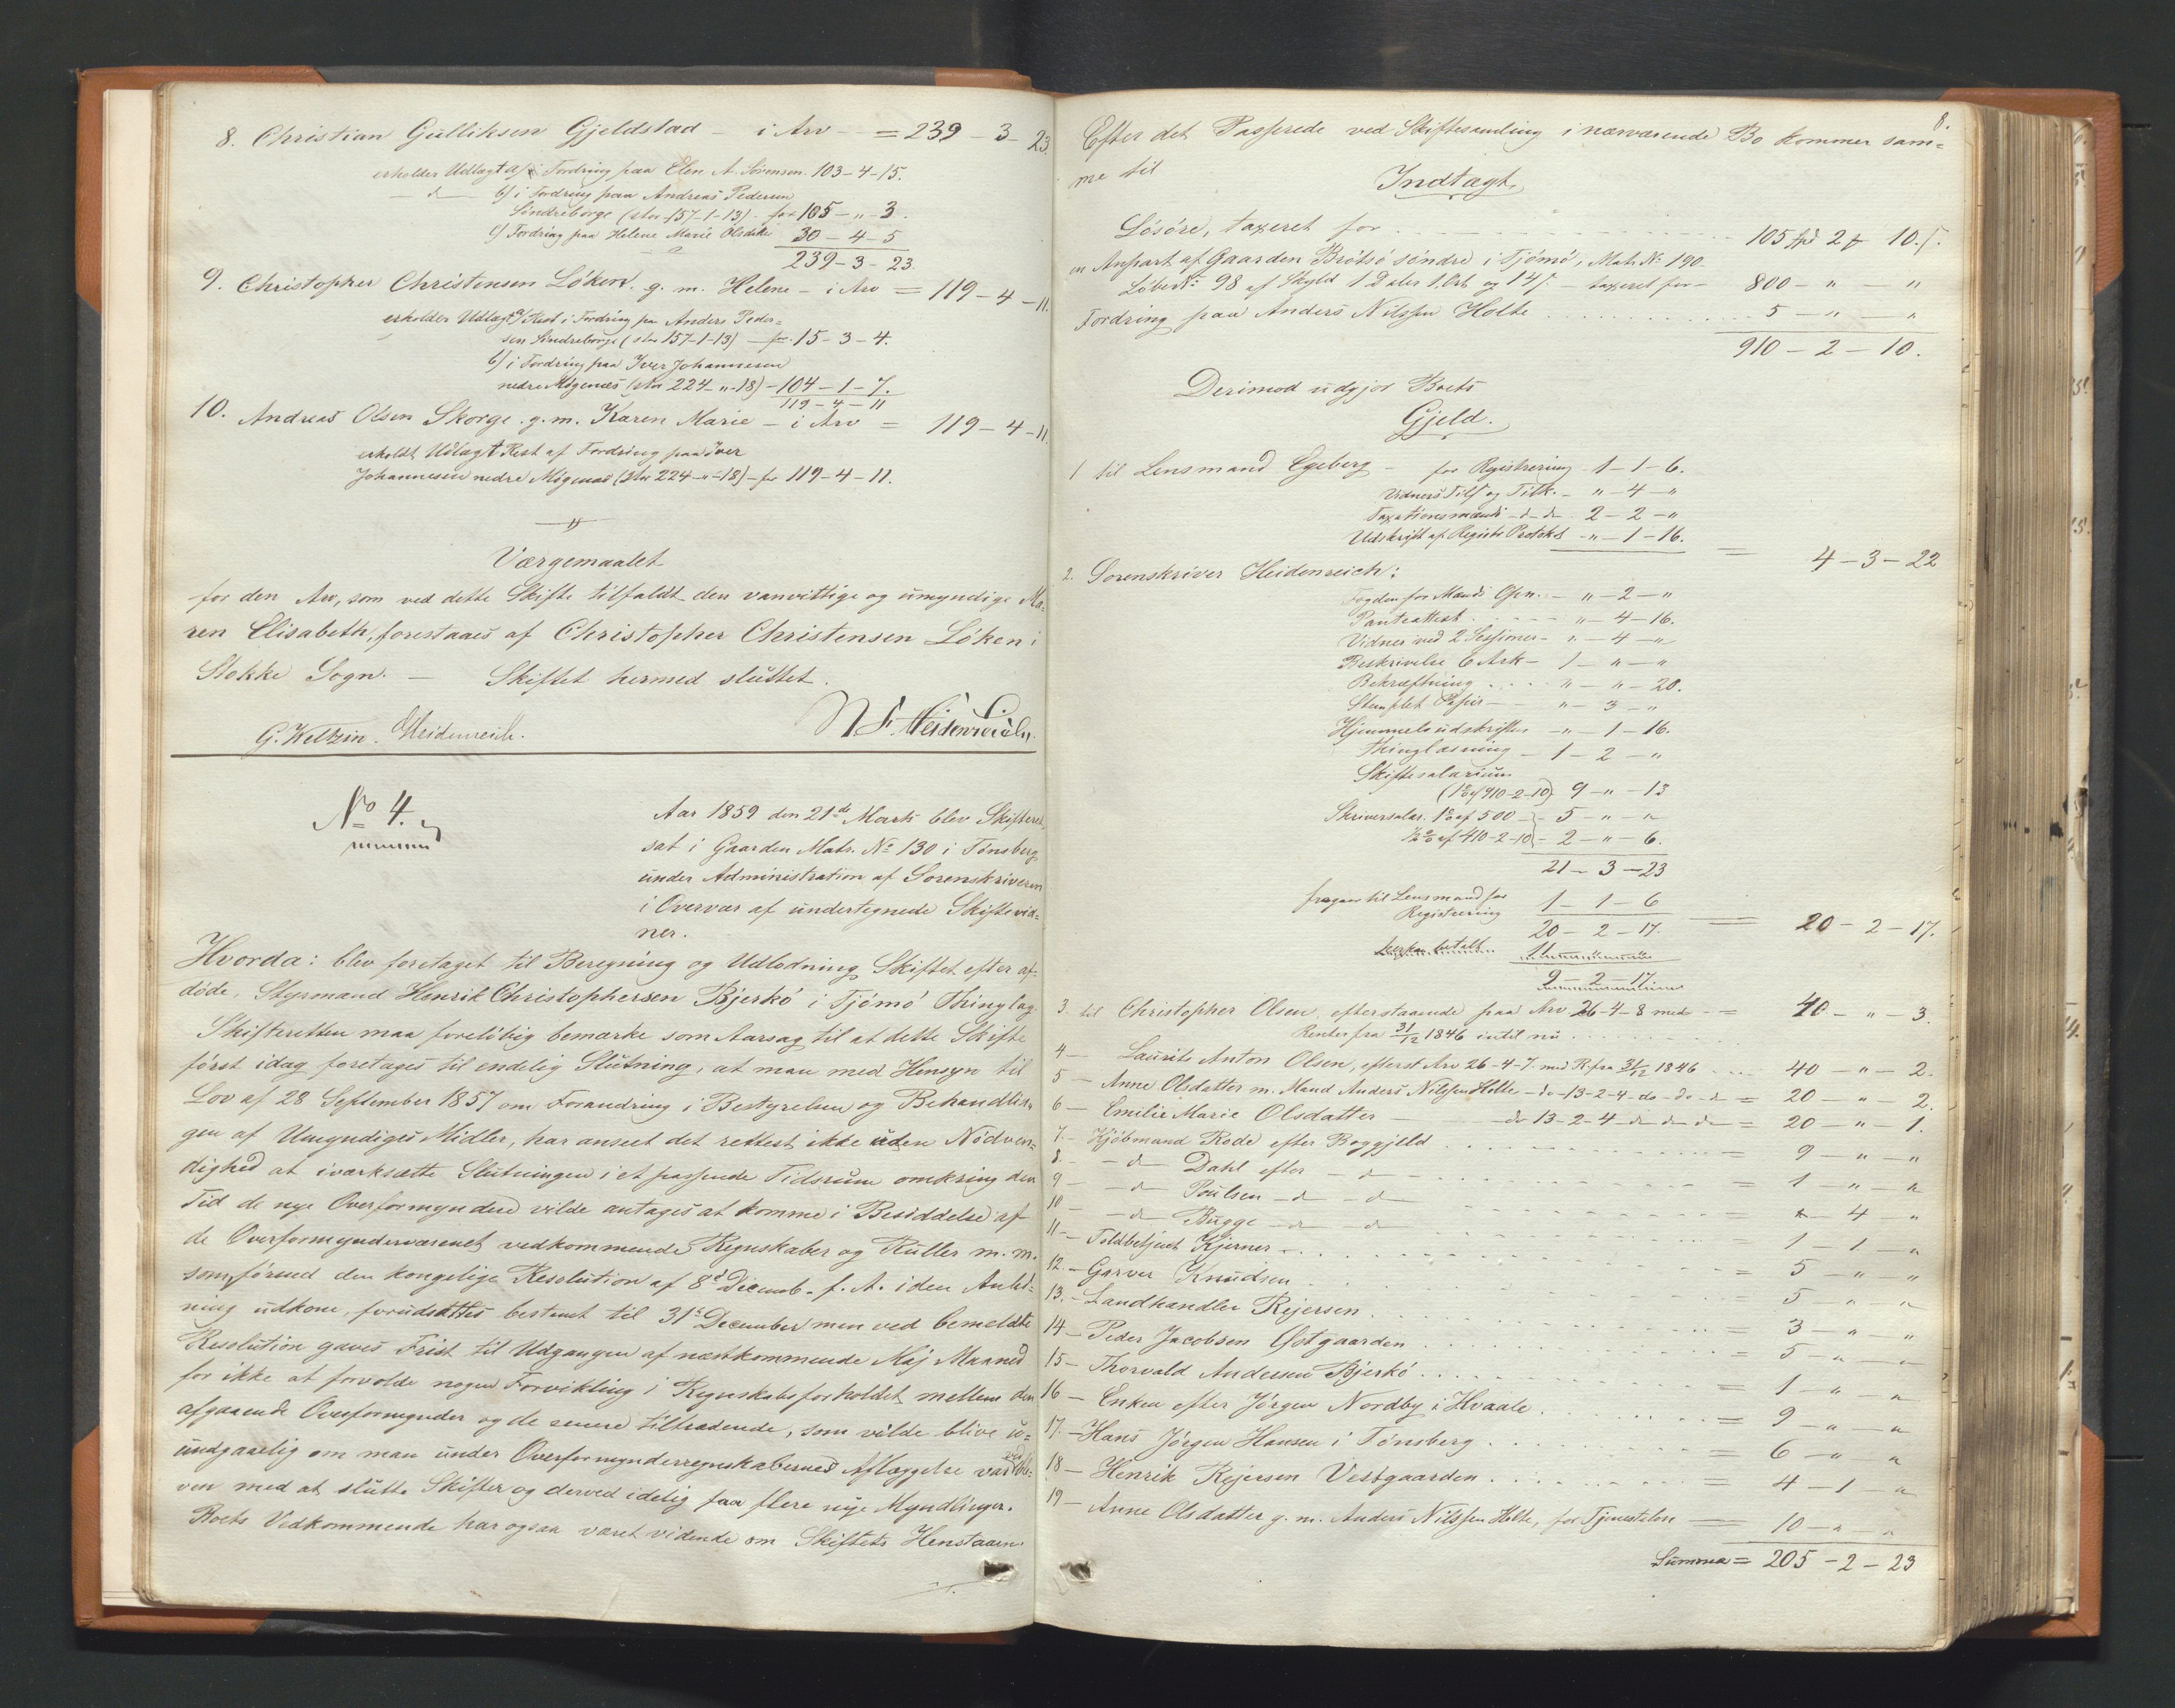 8. Christian Gulliksen Gjeldstad - i Arv - = 239 - 3 - 23.
erholder Udlagt a) i Fordring paa Elen A. Sørensen. 103-4-15.
- d - b) i Fordring paa Andreas Pedersen
Søndreborge (stor 157-1-13) - for 105 - " - 3.
c) Fordring paa Helene Marie Olsdatter 30 - 4 - 5
239 - 3 - 23.
9. Christopher Christensen Løken. g. m. Helene - i Arv = 119 - 4 - 11.
erholder Udlagt a) Rest i Fordring paa Anders Peder=
sen Søndreborge (stor 157-1-13) - for 15 - 3 - 4.
b) i Fordring paa Iver Johannesen
nedre Mogenæs (stor 224 - " - 18) - 104 - 1 - 7.
119 - 4 - 11
10. Andreas Olsen Skorge. g. m. Karen Marie - i Arv = 119 - 4 - 11.
erholdt Udlagt Rest af Fordring paa Iver
Johannesen nedre Mogenæs (stor 224 - " - 18) - for 119 - 4 - 11.
Værgemaalet
for den Arv, som ved dette Skifte tilfaldt den vanvittige og umyndige Ma=
ren Elisabeth, forestaaes af Christopher Christensen Løken i
Stokke Sogn. - Skiftet hermed sluttet.
N S. Heidenreich.
G. Keltzin. Heidenreich.
No 4.
Aar 1859 den 21de Marts blev Skifteret
sat i Gaarden Matr. No 130 i Tønsberg
under Administration af Sorenskriveren
i Overvær af undertegnede Skiftevid=
ner.
Hvorda: blev foretaget til Beregning og Udlodning Skiftet efter af=
døde, Styrmand Henrik Christophersen Bjerkø i Tjømø Thinglag.
Skifteretten maa foreløbig bemærke som Aarsag til at dette Skifte
først idag foretages til endelig Slutning, at man med Hensyn til
Lov af 28 September 1857 om Forandring i Bestyrelsen og Behandlin=
gen af Umyndiges Midler, har anseet det rettest ikke uden Nødven=
dighed at iværksætte Slutningen i et passende Tidsrum omkring den
Tid de nye Overformyndere vilde antages at komme i Besiddelse af
de Overformynderværenet vedkommende Regnskaber og Ruller m. m.
som, førend den kongelige Resolution af 8d Decemb. f. A. i den Anled=
ning udkom, forudsattes bestemt til 31te December men ved bemeldte
Resolution gaves Frist til Udgangen af næstkommende Maj Maaned
for ikke at forvolde nogen Forvikling i Regnskabsforholdet mellem den
afgaaende Overformynder og de senere tiltrædende, som vilde blive u=
undgaaelig om man under Overformynderregnskabernes Aflæggelse var ved ble=
ven med at slutte Skifter og derved idelig faa flere nye Myndlinger.
Boets Vedkommende har ogsaa været vidende om Skiftets Henstaaen.
8.
Efter det Passerede ved Skiftesamling i nærværende Bo kommer sam=
me til
Indtægt,
Løsøre, taxeret for 105 Spd 2 # 10 s.
en Anpart af Gaarden Brøtsø søndre i Tjømø, Matr. No 190
Løbe No 98 af Skyld 1 Daler 1 Ort og 14 s. - taxeret for - 800 - " - "
Fordring paa Anders Nilssen Holte 5 - " - "
910 - 2 - 10.
Derimod udgjør Boets
Gjeld.
1 til Lensmand Egeberg - for Registrering - 1 - 1 - 6.
Vidners Tils. og Tilk. - " - 4 - "
Taxationsmænds - d - d - 2 - 2 - "
Udskrift af Registr. Protokol - " - 1 - 16.
= 4 - 3 - 22
2. Sorenskriver Heidenreich:
Fogden for Mænds Opn. - " - 2 - "
Panteattest - " - 4 - 16.
Vidner ved 2 Sessioner - " - 4 - "
Beskrivelse 6 Ark - 1 - " - "
Bekræftning - " - " - 20.
Stemplet Papir - " - 3 - "
Hjemmelsudskriften - " - 1 - 16.
Thinglæsning - 1 - 2 - "
Skiftesalarium
(1% af 910-2-10) 9 - " - 13
Skriversalar. 1% af 500 - 5 - " - "
½% af 410-2-10 - 2 - " - 6.
21 - 3 - 23
fragaaer til Lensmand for
Registrering 1 - 1 - 6
20 - 2 - 17 = 20 - 2 - 17.
herpaa betalt 11
9 - 2 - 17
3. til Christopher Olsen, efterstaaende paa Arv 26-4-8 med = 40 - " - 3.
Renter fra 31/12 1846 indtil nu
4 - Laurits Anton Olsen, efterst. Arv 26-4-7. med R. fra 31/12 1846 40 - " - 2.
5 - Anne Olsdatter m. Mand Anders Nilssen Holte - do - 13-2-4 - do - do - d = 20 - " - 2.
6 - Emilie Marie Olsdatter - do 13-2-4 do do do = 20 - " - 1.
7. - Kjøbmand Rode efter Boggjeld = 9 - " - "
8. - d - Dahl efter - d - = 1 - " - "
9 - d - Poulsen - d - d = " - 4 - "
10 - d - Bugge - d - d 1 - 1 - "
11 - Toldbetjent Kjerner = 5 - " - "
12. - Garver Knudsen = 5 - " - "
13. - Landhandler Rejersen 3 - " - "
14 - Peder Jacobsen Østgaarden = 5 - " - "
15 - Thorvald Andersen Bjerkø = 1 - " - "
16 - Enken efter Jørgen Nordby i Hvaale = 9 - " - "
17. - Hans Jørgen Hansen i Tønsberg = 6 - " - "
18 - Henrik Rejersen Vestgaarden = 4 - 1 - "
19 - Anne Olsdatter g. m. Anders Nilssen Holte, for Tjenesteløn 10 - " - "
Summa = 205 - 2 - 23